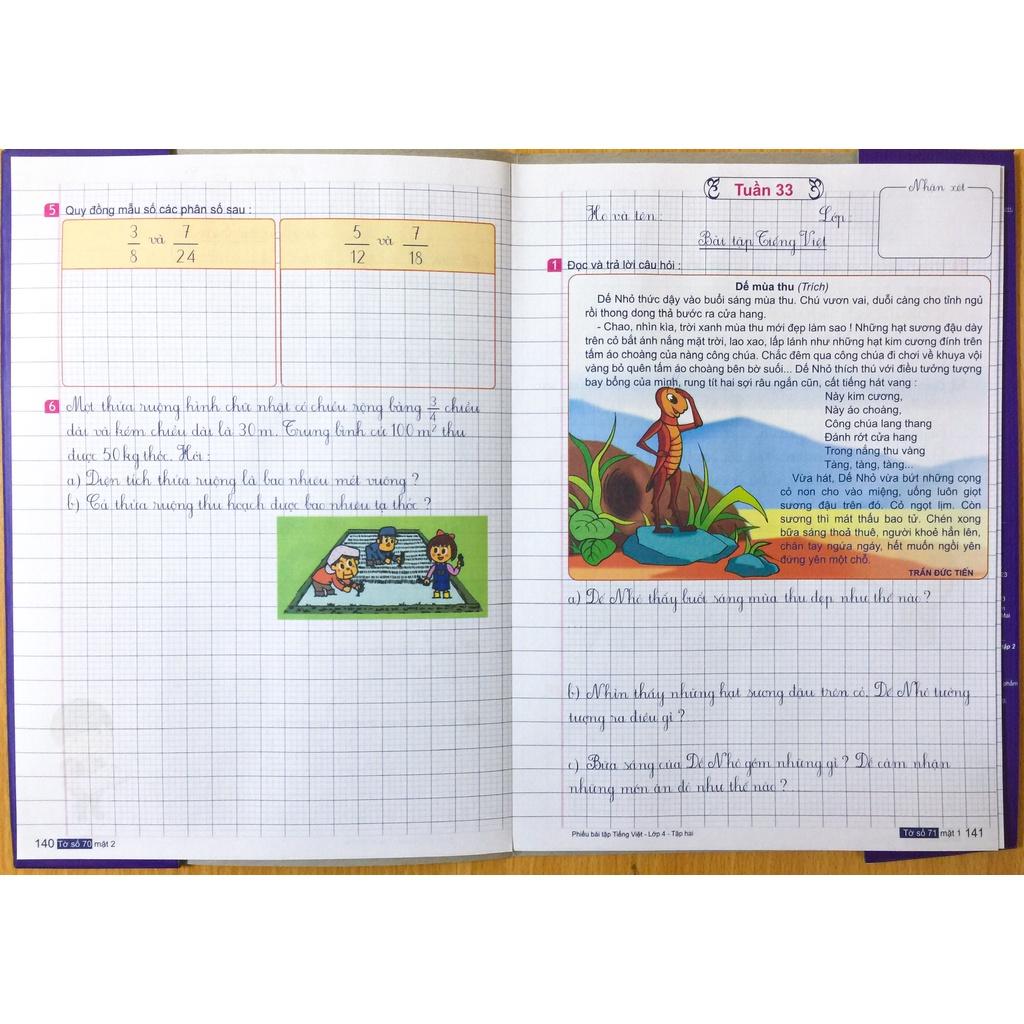 5 Quy đồng mẫu số các phân số sau :
3/8 và 7/24
5/12 và 7/18
6 Một thửa ruộng hình chữ nhật có chiều rộng bằng 3/4 chiều
dài và kém chiều dài là 30 m. Trung bình cứ 100 m² thu
được 50 kg thóc. Hỏi :
a) Diện tích thửa ruộng là bao nhiêu mét vuông ?
b) Cả thửa ruộng thu hoạch được bao nhiêu tạ thóc ?
140 Tờ số 70 mặt 2
Tuần 33
Nhận xét
Họ và tên : Lớp :
Bài tập Tiếng Việt
1 Đọc và trả lời câu hỏi :
Dế mùa thu (Trích)
Dế Nhỏ thức dậy vào buổi sáng mùa thu. Chú vươn vai, duỗi càng cho tỉnh ngủ
rồi thong dong thả bước ra cửa hang.
- Chao, nhìn kìa, trời xanh mùa thu mới đẹp làm sao ! Những hạt sương đậu dày
trên cỏ bắt ánh nắng mặt trời, lao xao, lấp lánh như những hạt kim cương đính trên
tấm áo choàng của nàng công chúa. Chắc đêm qua công chúa đi chơi về khuya vội
vàng bỏ quên tấm áo choàng bên bờ suối... Dế Nhỏ thích thú với điều tưởng tượng
bay bổng của mình, rung tít hai sợi râu ngắn cũn, cất tiếng hát vang :
Này kim cương,
Này áo choàng,
Công chúa lang thang
Đánh rớt cửa hang
Trong nắng thu vàng
Tàng, tàng, tàng...
Vừa hát, Dế Nhỏ vừa bứt những cọng
cỏ non cho vào miệng, uống luôn giọt
sương đậu trên đó. Cỏ ngọt lịm. Còn
sương thì mát thấu bao tử. Chén xong
bữa sáng thoả thuê, người khoẻ hẳn lên,
chân tay ngứa ngáy, hết muốn ngồi yên
đứng yên một chỗ.
TRẦN ĐỨC TIẾN
a) Dế Nhỏ thấy buổi sáng mùa thu đẹp như thế nào ?
b) Nhìn thấy những hạt sương đậu trên cỏ, Dế Nhỏ tưởng
tượng ra điều gì ?
c) Bữa sáng của Dế Nhỏ gồm những gì ? Dế cảm nhận
những món ăn đó như thế nào ?
Phiếu bài tập Tiếng Việt - Lớp 4 - Tập hai
Tờ số 71 mặt 1 141